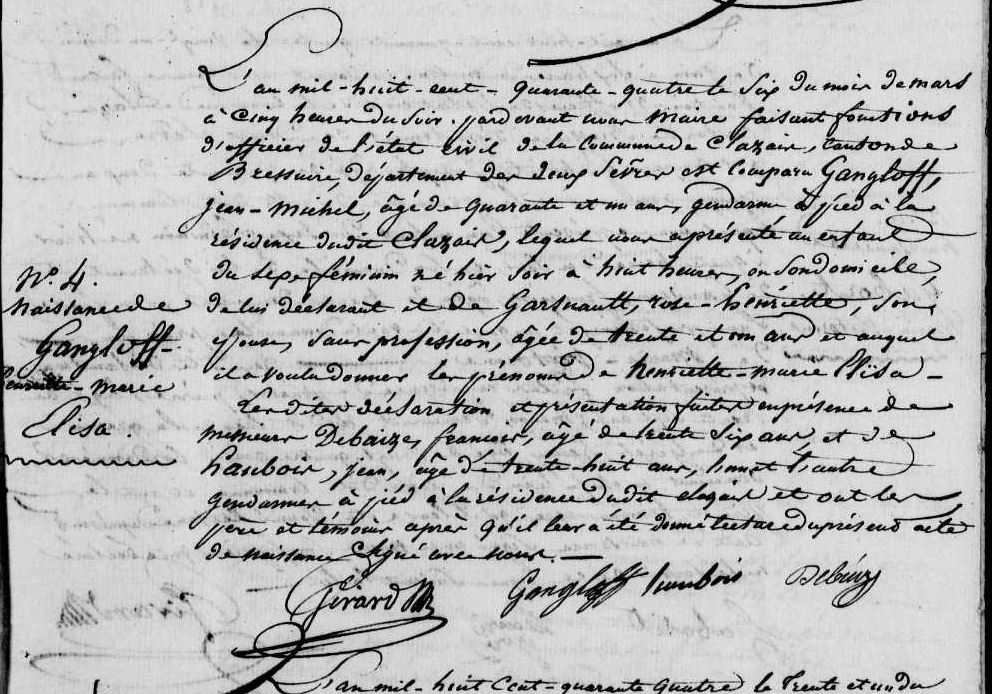 L'an mil-huit-cent-quarante-quatre le six du mois de mars
à cinq heures du soir. pardevant nous Maire faisant fonctions
d'officier de l'état civil de la Commune de Clazais, canton de
Bressuire, département des deux Sèvres est comparu Gangloff,
jean-Michel, âgé de quarante et un ans, gendarme à pied à la
résidence dudit Clazais, lequel nous a présenté un enfant
du sexe féminin né hier soir à huit heures, en son domicile,
de lui déclarant et de Garsuault, rose-henriette, son
épouse, sans profession, âgée de trente et un ans et auquel
il a voulu donner les prénoms de henriette-marie Elisa-
Les dites déclaration et présentation faites en présence de
messieurs Debaize, françois, âgé de trente six ans, et de
haubois, jean, âgé de trente-huit ans, l'un et l'autre
gendarmes à pied à la résidence dudit clazais et ont les
père et témoins après qu'il leur a été donné lecture du présent acte
de naissance signé avec nous.
N°. 4.
Naissance de
Gangloff-
henriette-marie
Elisa.
Girard Gangloff haubois Debaize
L'an mil-huit cent-quarante quatre le trente et un du